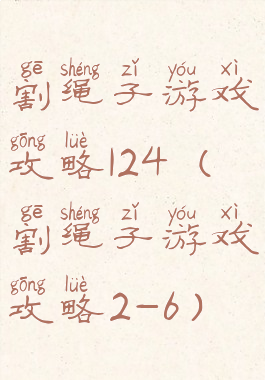 gē shéng zǐ yóu xì
割绳子游戏
gōng lüè
攻略124（
gē shéng zǐ yóu xì
割绳子游戏
gōng lüè
攻略2-6）